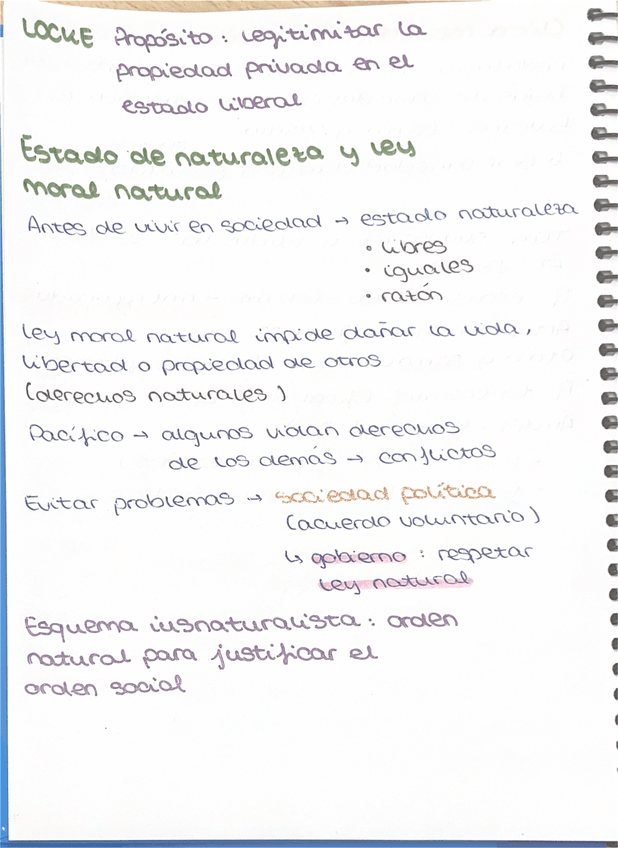 LOCKE Propósito: Legitimizar la
propiedad privada en el
estado liberal
Estado de naturaleza y ley
moral natural
Antes de vivir en sociedad → estado naturaleza
• libres
• iguales
• razón
Ley moral natural impide dañar la vida,
libertad o propiedad de otros
(derechos naturales)
Pacífico → algunos violan derechos
de los demás → conflictos
Evitar problemas → sociedad política
(acuerdo voluntario)
↳ gobierno: respetar
ley natural
Esquema iusnaturalista: orden
natural para justificar el
orden social